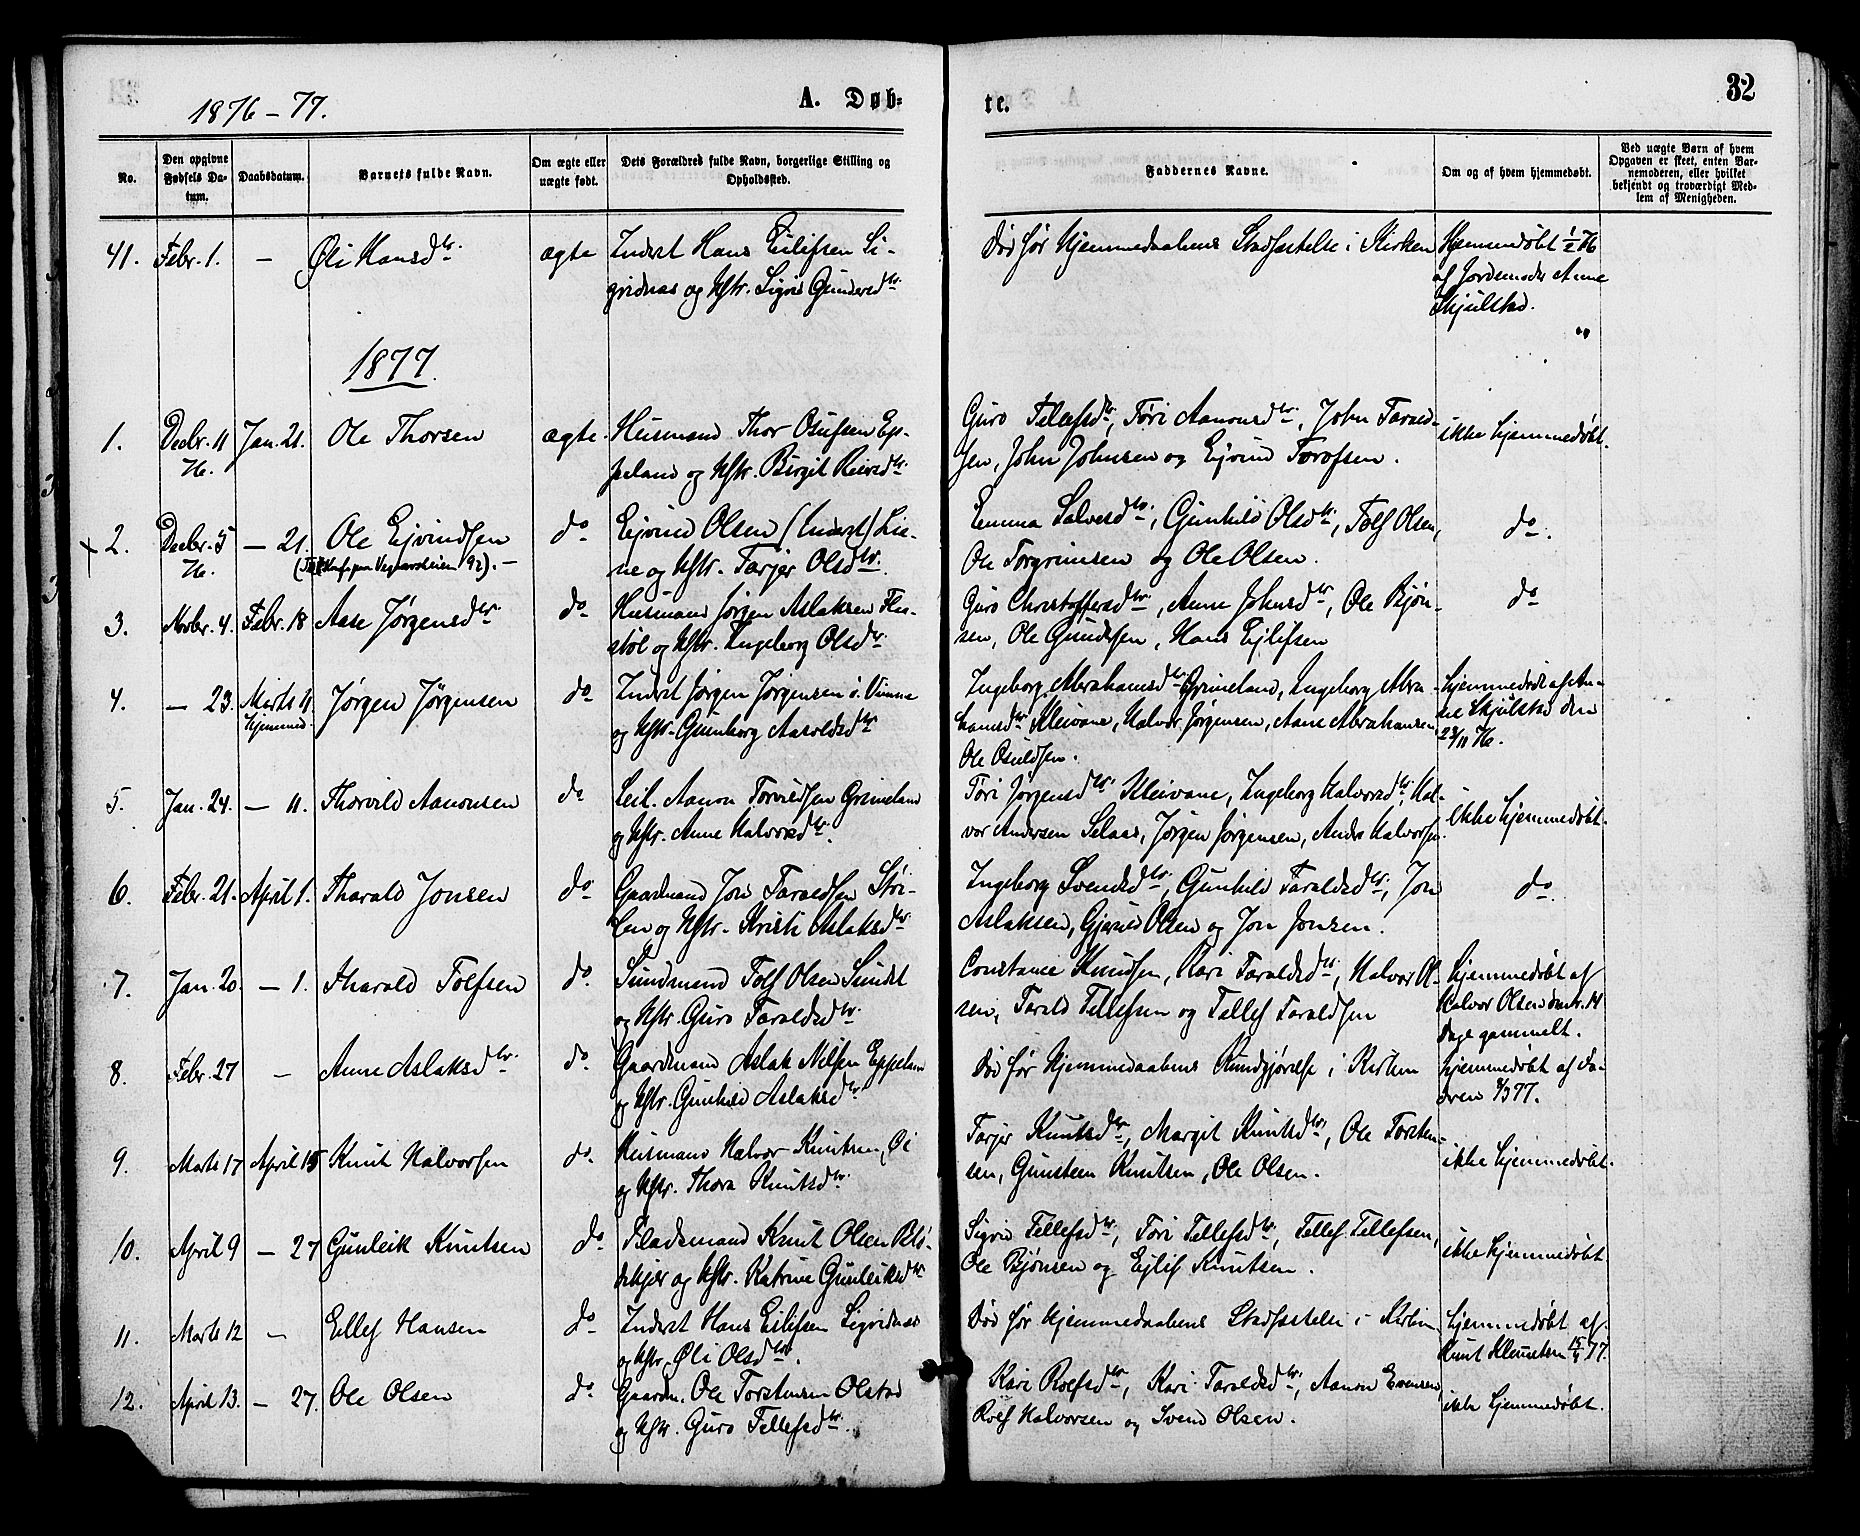 1876-77.
A. Døb-
te.
32
No.
Den opgivne Fødsels Datum.
Daabsdatum.
Barnets fulde Navn.
Om ægte eller uægte født.
Dets Forældres fulde Navn, borgerlige Stilling og Opholdssted.
Faddernes Navne.
Om og af hvem hjemmedøbt.
Ved uægte Børn af hvem Opgaven er skeet, enten Barnemoderen, eller hvilket bekjendt og troværdigt Medlem af Menigheden.
41. Febr. 1. - Øli Hansdtr. ægte Inderst Hans Eilifsen Si-
gridnas og Hstr. Sigrid Gundersdtr.
Død før Hjemmedaabens Stadfæstelse i Kirken
Hjemmedøbt 1/2 76
af Jordemoder Anne
Skjulstad.
1877.
1. Decbr. 11 76. Jan. 21. Ole Thorsen ægte. Husmand Thor Osufsen Ep-
peland og Hstr. Birgit Reiersdtr.
Guro Tellefsdtr., Tøri Aanonsdtr., John Tarald-
sen, John Johnsen og Ejvind Torofsen.
ikke hjemmedøbt.
2. Decbr. 5 76. - 21. Ole Ejvindsen do Ejvind Olsen (Inderst) Lie-
ne og Hstr. Tarjer Olsdtr.
Emma Salvesdtr., Gunhild Olsdtr., Tolf Olsen,
Ole Torgrimsen og Ole Olsen.
do.
3. Novbr. 4. Febr. 18 Aase Jørgensdtr. do Husmand Jørgen Aslaksen
støl og Hstr. Ingeborg Olsdtr.
Guro Christoffersdtr., Anne Johnsdtr., Ole Bjøn-
sen, Ole Gundersen, Hans Ejlifsen
do
4. - 23. Marts 11 hjemmed. Jørgen Jørgensen do Inderst Jørgen Jørgensen i. Vimme
og Hstr. Gunborg Aasoldsdtr
Ingeborg Abrahamsdtr Grimeland, Ingeborg Abra-
hamsdtr Kleivane, Halvor Jørgensen, Aane Abrahamsen
Ole Osuldsen.
hjemmedøbt af An-
ne Skjulstad den
23/11 76.
5. Jan. 24. - 11. Thorvild Aanonsen do Leil. Aanon Torvildsen Grimeland
og Hstr. Anne Halvorsdtr.
Tøri Jørgensdtr Kleivane, Ingeborg Halvorsdtr, Hal-
vor Andersen Selaas, Jørgen Jørgensen, Anders Halvorsen
ikke hjemmedøbt.
6. Febr. 21. April 1. Tharald Jonsen do Gaardmand Jon Taraldsen Stri-
len og Hstr. Kristi Aslaksdtr
Ingeborg Svendsdtr., Gunhild Taraldsdtr., Jon
Aslaksen, Olsen og Jon Jonsen.
do.
7. Jan. 20. - 1. Tharald Tolfsen do. Sundmand Tolf Olsen Sundet
og Hstr. Guro Taraldsdtr.
Constance Knudsen, Kari Taraldsdtr., Halvor Ol-
sen, Tarald Tellefsen og Tellef Taraldsen
hjemmedøbt af
Halvor Olsen omtr. 14
Dage gammelt.
8. Febr. 27 - Anne Aslaksdtr. do. Gaardmand Aslak Nilsen Eppeland
og Hstr. Gunhild Aslaksdtr
Død før Hjemmedaabens Kundgjørelse i Kirken
hjemmedøbt af Fa-
deren /3 77.
9. Marts 17 April 15 Knut Halvorsen do. Husmand Halvor Knutsen, Øi
og Hstr. Thora Knutsdtr.
Tarjer Knutsdtr, Margit Knutsdtr, Ole Torsten-
sen, Gunsteen Knutsen, Ole Olsen.
ikke hjemmedøbt.
10. April 9 - 27 Gunleik Knutsen do. Pladsmand Knut Olsen
og Hstr. Katrine Gunleiksdtr
Sigrid Tellefsdtr., Tøri Tellefsdtr., Tellef Tellefsen,
Ole Bjønsen og Ejlef Knutsen.
ikke hjemmedøbt
11. Marts 12 - Ellef Hansen do. Inderst Hans Eilifsen Sigridnas
og Hstr. Øli Olsdtr.
Død før Hjemmedaabens Stadfæstelse i Kirken
hjemmedøbt af
Knut
12. April 13. - 27. Ole Olsen do Gaardm. Ole Torstensen Olstad
og Hstr. Guro Tellefsdtr.
Kari Rolfsdtr., Kari Taraldsdtr., Aanon Evensen
Rolf Halvorsen og Svend Olsen.
ikke hjemmedøbt.